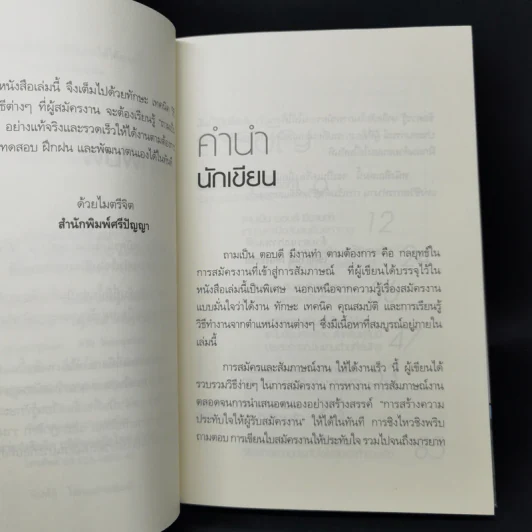 หนังสือเล่มนี้ จึงเต็มไปด้วยทักษะ เทคนิค
ธีต่างๆ ที่ผู้สมัครงาน จะต้องเรียนรู้
อย่างแท้จริงและรวดเร็วให้ได้งานตามต้องการ
ทดสอบ ฝึกฝน และพัฒนาตนเองได้ในทันที
ด้วยไมตรีจิต
สำนักพิมพ์ศรีปัญญา
คำนำ
นักเขียน
ถามเป็น ตอบดี มีงานทำ ตามต้องการ คือ กลยุทธ์ใน
การสมัครงานที่เข้าสู่การสัมภาษณ์ ที่ผู้เขียนได้บรรจุไว้ใน
หนังสือเล่มนี้เป็นพิเศษ นอกเหนือจากความรู้เรื่องสมัครงาน
แบบมั่นใจว่าได้งาน ทักษะ เทคนิค คุณสมบัติ และการเรียนรู้
วิธีทำงานจากตำแหน่งงานต่างๆ ซึ่งมีเนื้อหาที่สมบูรณ์อยู่ภายใน
เล่มนี้
การสมัครและสัมภาษณ์งาน ให้ได้งานเร็ว นี้ ผู้เขียนได้
รวบรวมวิธีง่ายๆ ในการสมัครงาน การหางาน การสัมภาษณ์งาน
ตลอดจนการนำเสนอตนเองอย่างสร้างสรรค์ "การสร้างความ
ประทับใจให้ผู้รับสมัครงาน" ให้ได้ในทันที การชิงไหวชิงพริบ
ถามตอบ การเขียนใบสมัครงานให้ประทับใจ รวมไปจนถึงมารยาท